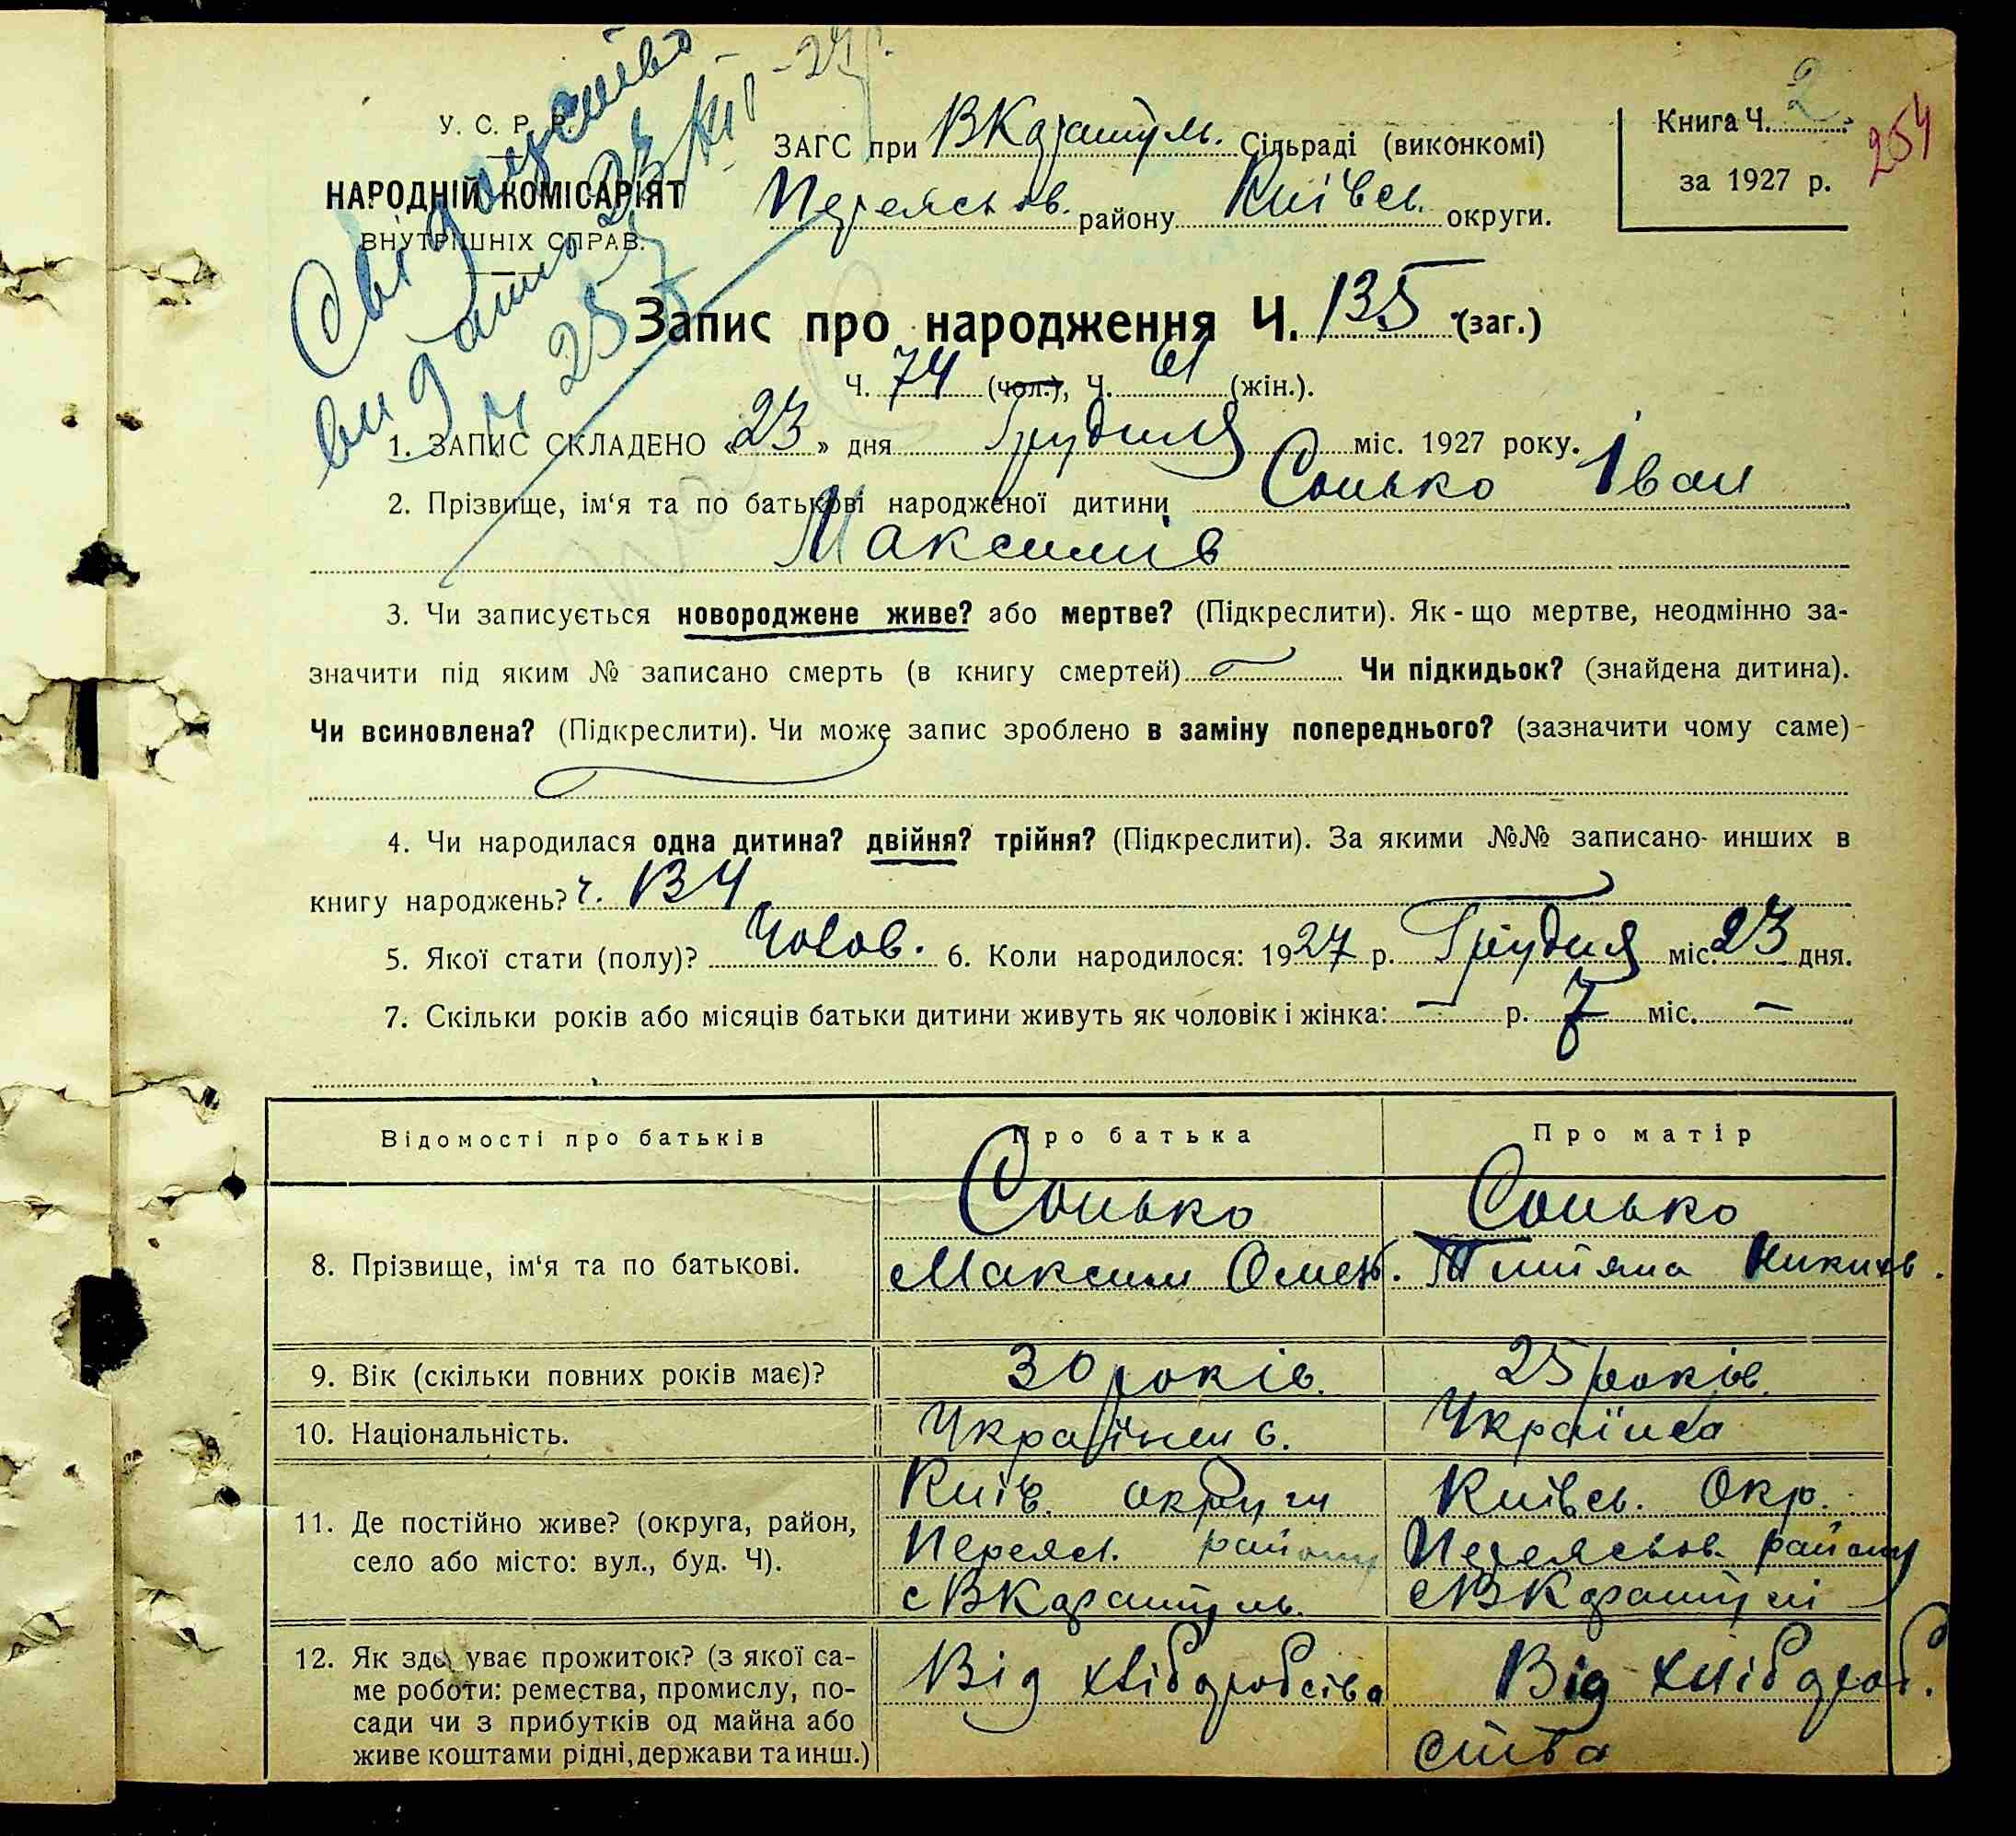 Свідоцтво
видано 23/XII - 27 р.
ч 257
У. С. Р. Р.
НАРОДНІЙ КОМІСАРІЯТ
ВНУТРІШНІХ СПРАВ.
ЗАГС при ВКаратуль. Сільраді (виконкомі)
Переяслов. району Київсь. округи.
Книга Ч. 2.
за 1927 р.
254
Запис про народження Ч. 135 (заг.)
Ч. 74 (чол.), Ч. 61 (жін.).
1. ЗАПИС СКЛАДЕНО «23» дня Грудня міс. 1927 року.
2. Прізвище, ім‘я та по батькові народженої дитини Сонько Іван
Максимів
3. Чи записується новороджене живе? або мертве? (Підкреслити). Як-що мертве, неодмінно за-
значити під яким № записано смерть (в книгу смертей) Чи підкидьок? (знайдена дитина).
Чи всиновлена? (Підкреслити). Чи може запис зроблено в заміну попереднього? (зазначити чому саме)
4. Чи народилася одна дитина? двійня? трійня? (Підкреслити). За якими №№ записано инших в
книгу народжень? ч. 134
5. Якої стати (полу)? Чолов. 6. Коли народилося: 1927 р. Грудня міс. 23 дня.
7. Скільки років або місяців батьки дитини живуть як чоловік і жінка: — р. 7 міс. —
Відомості про батьків Про батька Про матір
8. Прізвище, ім‘я та по батькові.
Сонько
Максим
Сонько
9. Вік (скільки повних років має)? 30 років. 25 років.
10. Національність. Українец. Українка
11. Де постійно живе? (округа, район,
село або місто: вул., буд. Ч).
Київ. округи
Переясл. району
с ВКаратуль.
Київсь. Окр.
Переяслов. району
с ВКаратулі
12. Як здобуває прожиток? (з якої са-
ме роботи: ремества, промислу, по-
сади чи з прибутків од майна або
живе коштами рідні, держави та инш.)
Від хліборобства
Від хлібороб.
ства